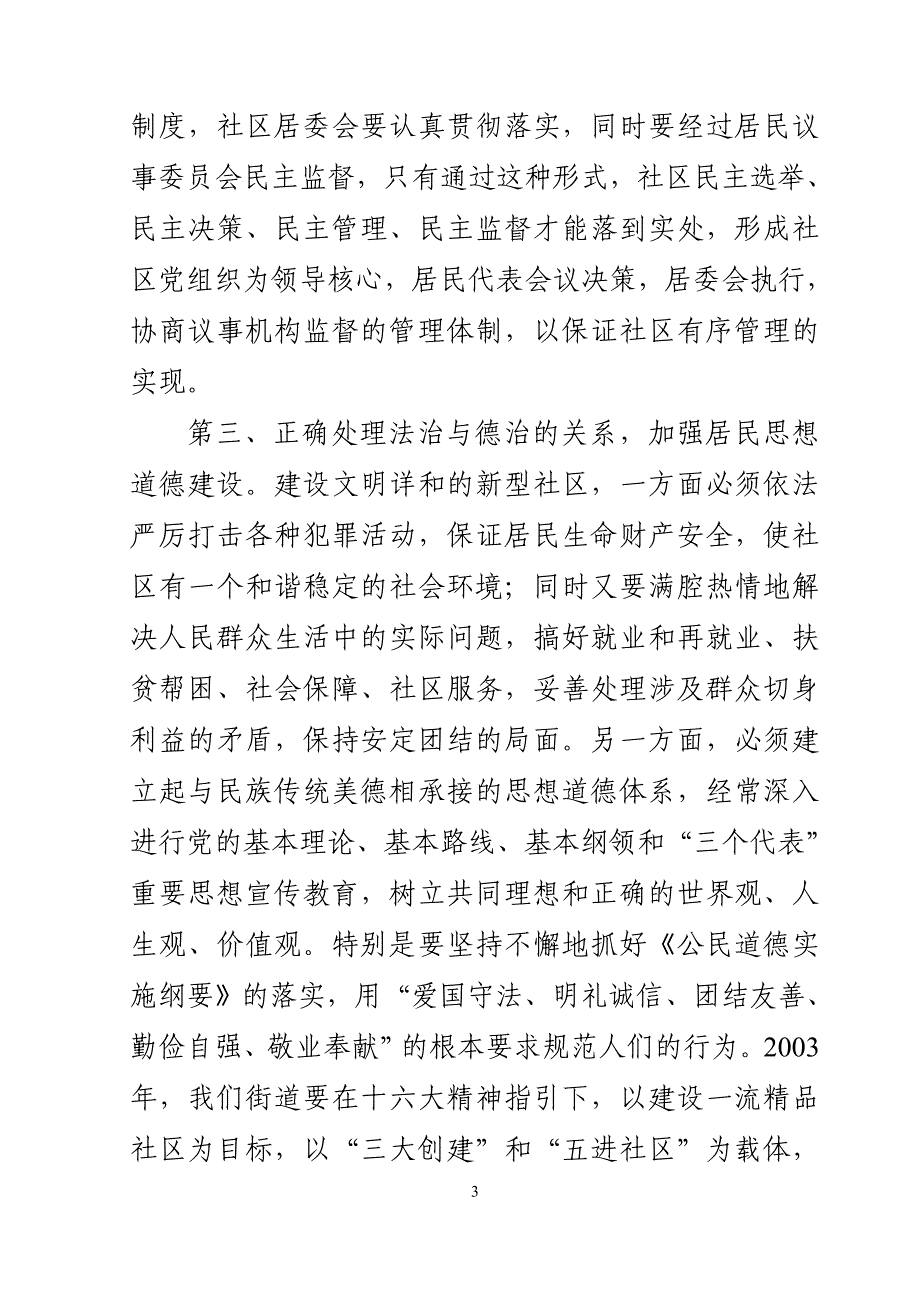 制度，社区居委会要认真贯彻落实，同时要经过居民议
事委员会民主监督，只有通过这种形式，社区民主选举、
民主决策、民主管理、民主监督才能落到实处，形成社
区党组织为领导核心，居民代表会议决策，居委会执行，
协商议事机构监督的管理体制，以保证社区有序管理的
实现。
第三、正确处理法治与德治的关系，加强居民思想
道德建设。建设文明详和的新型社区，一方面必须依法
严厉打击各种犯罪活动，保证居民生命财产安全，使社
区有一个和谐稳定的社会环境；同时又要满腔热情地解
决人民群众生活中的实际问题，搞好就业和再就业、扶
贫帮困、社会保障、社区服务，妥善处理涉及群众切身
利益的矛盾，保持安定团结的局面。另一方面，必须建
立起与民族传统美德相承接的思想道德体系，经常深入
进行党的基本理论、基本路线、基本纲领和“三个代表”
重要思想宣传教育，树立共同理想和正确的世界观、人
生观、价值观。特别是要坚持不懈地抓好《公民道德实
施纲要》的落实，用“爱国守法、明礼诚信、团结友善、
勤俭自强、敬业奉献”的根本要求规范人们的行为。2003
年，我们街道要在十六大精神指引下，以建设一流精品
社区为目标，以“三大创建”和“五进社区”为载体，
3